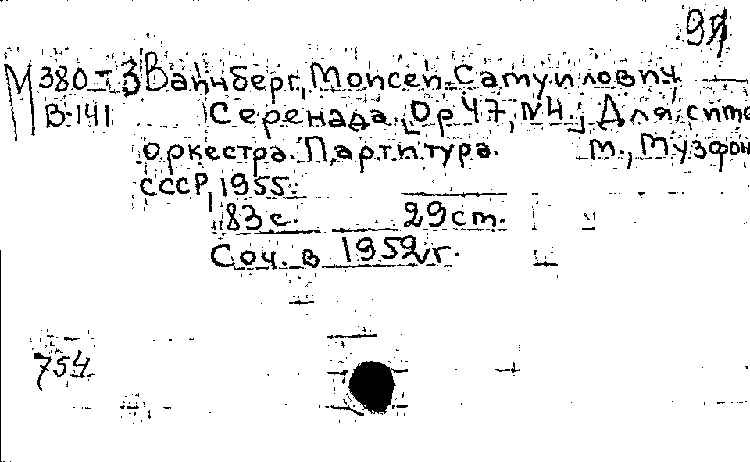 94
М 380-3 Вайнберг, Моисей Самуилович
В-141 Серенада. [Op 47, N4.] Для симф
оркестра. Партитура. М., Музфон
СССР, 1955.
83 с. 29 ст.
Соч. в 1952 г.
754